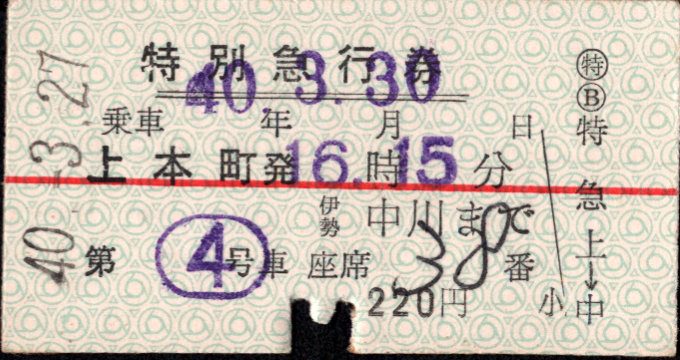 特別急行券
40.3.30
乗車 年 月 日
上本町発 16時15分
伊勢中川まで
第4号車 座席 38番
220円
小
40.-3.27
㊕Ⓑ特急上→中